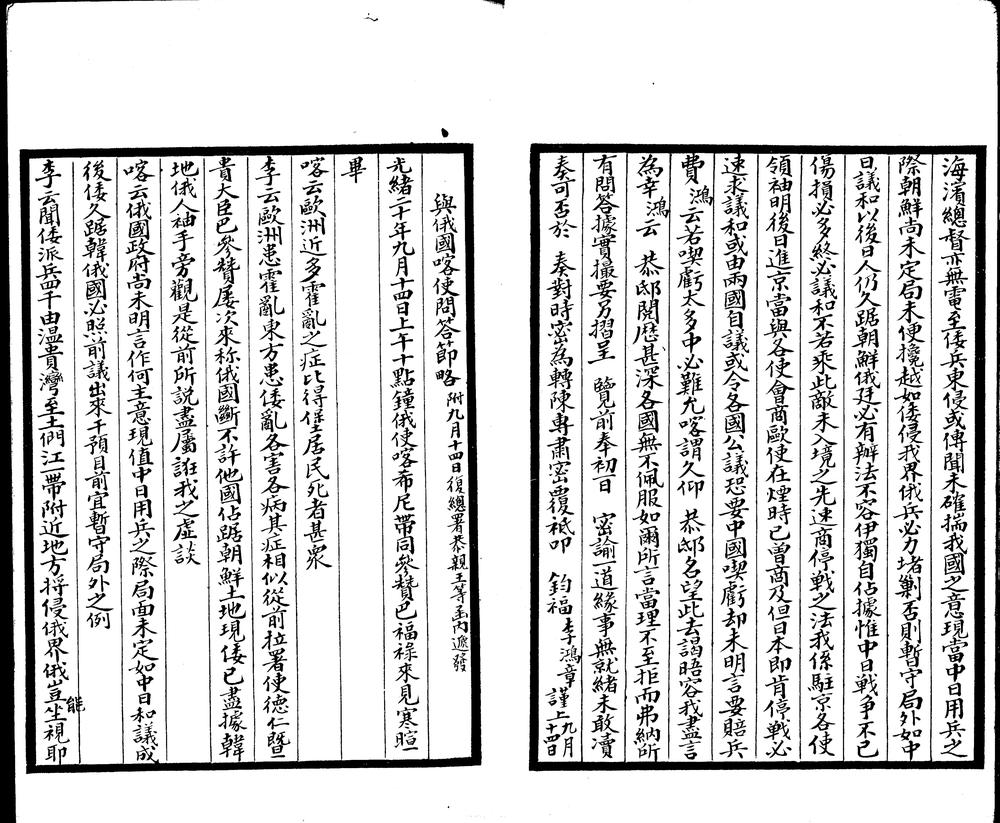 海濱總督亦無電至倭兵東侵或傳聞未確揣我國之意現當中日用兵之
際朝鮮尚未定局未便攙越如倭侵我界俄兵必力堵剿否則暫守局外如中
日議和以後日人仍久踞朝鮮俄廷必有辦法不容伊獨自佔據惟中日戰爭不已
傷損必多終必議和不若乘此敵未入境之先速商停戰之法我係駐京各使
領袖明後日進京當與各使會商歐使在煙時已曾商及但日本即肯停戰必
速求議和或由兩國自議或令各國公議恐要中國喫虧却未明言要賠兵
費鴻云若喫虧太多中必難允喀謂久仰 恭邸名望此去謁晤容我盡言
為幸鴻云 恭邸閱歷甚深各國無不佩服如爾所言當理不至拒而弗納所
有問答據實撮要另摺呈 覽前奉初一日 密諭一道緣事無就緒未敢瀆
奏可否於 奏對時密為轉陳專肅密覆祗叩 鈞福李鴻章謹上九月十四日
與俄國喀使問答節略附九月十四日復總署恭親王等函內遞發
光緒二十年九月十四日上午十點鐘俄使喀希尼帶同參贊巴福祿來見寒暄一
畢
喀云歐洲近多霍亂之症比得堡居民死者甚眾
李云歐洲患霍亂東方患倭亂各害各病其症相似從前拉署使德仁暨
貴大臣巴參贊屢次來称俄國斷不許他國佔踞朝鮮土地現倭已盡據韓
地俄人袖手旁觀是從前所說盡屬誑我之虛談
喀云俄國政府尚未明言作何主意現值中日用兵之際局面未定如中日和議成
後倭久踞韓俄國必照前議出來干預目前宜暫守局外之例
李云聞倭派兵四千由溫貴灣至土們江一帶附近地方将侵俄界俄豈能坐視耶